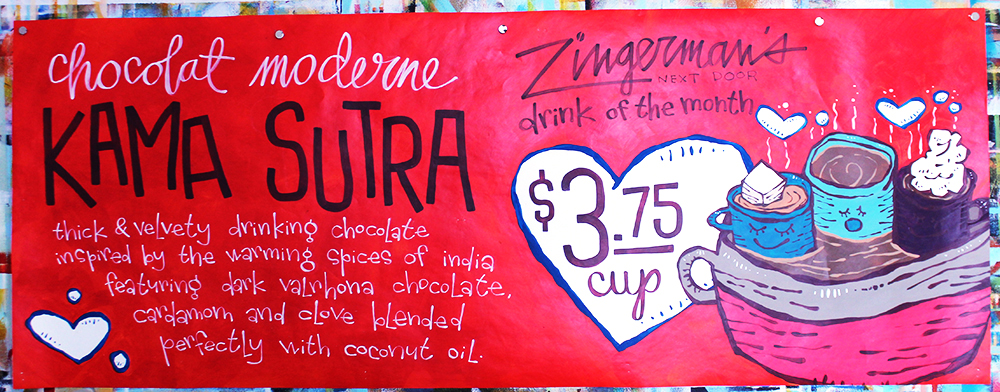 chocolat moderne
KAMA SUTRA
thick & velvety drinking chocolate
inspired by the warming spices of india
featuring dark valrhona chocolate,
cardamom and clove blended
perfectly with coconut oil.
Zingerman's
NEXT DOOR
drink of the month
$3.75
cup